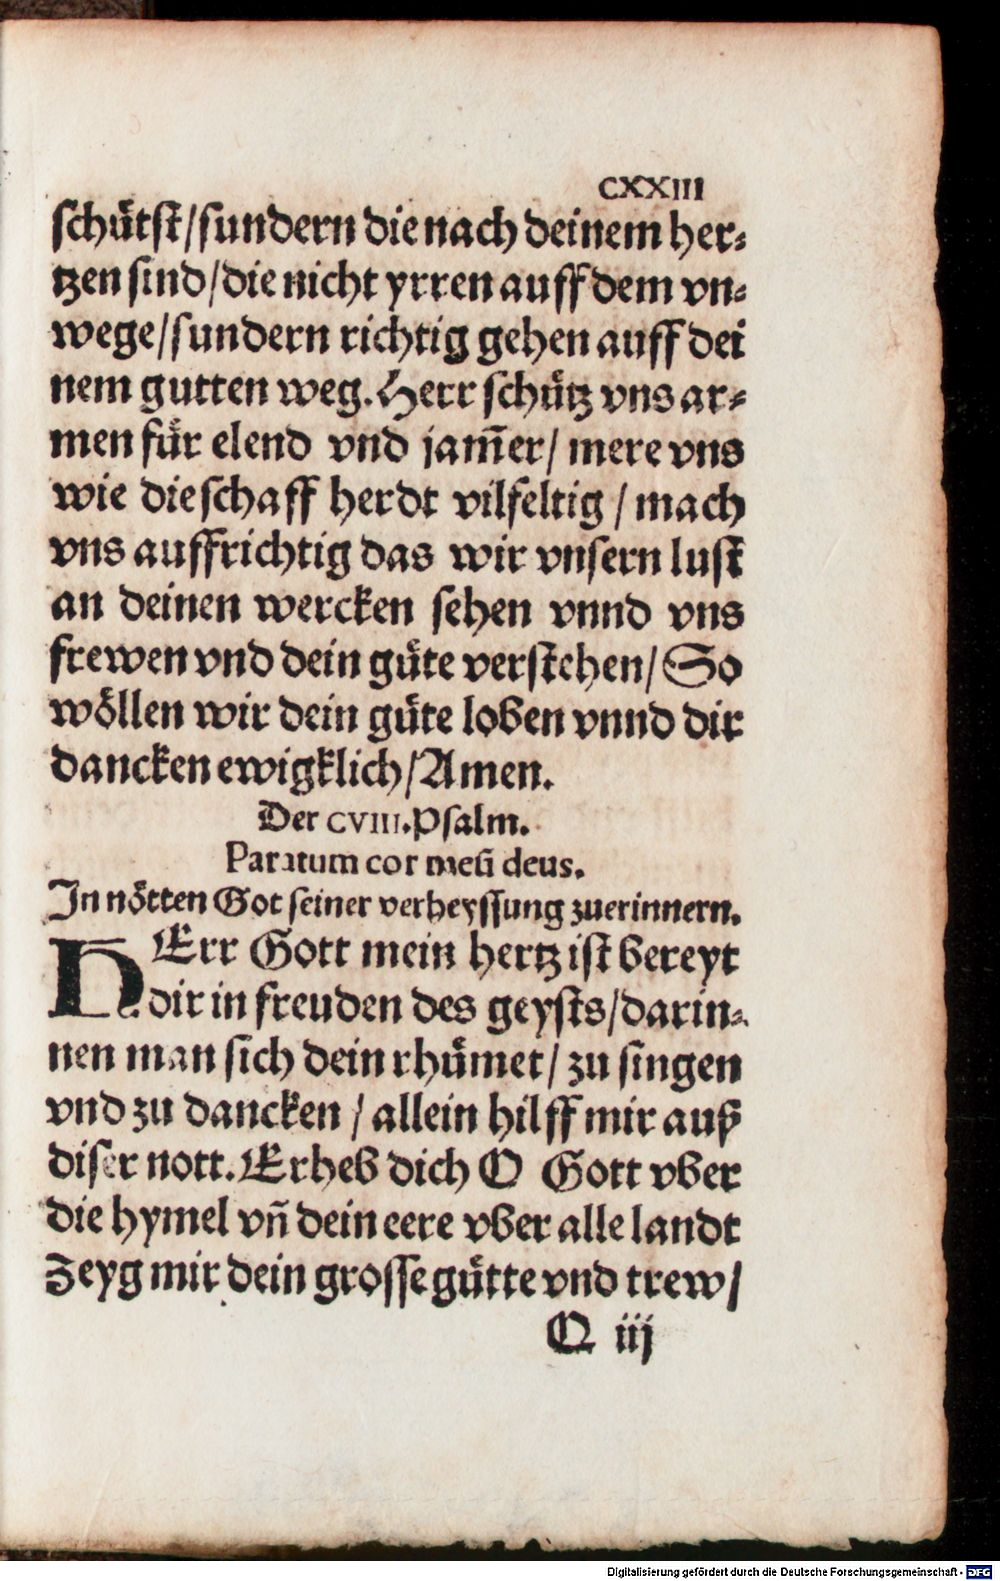 CXXIII
schütst/sundern die nach deinem her⸗
tzen sind/die nicht yrren auff dem vn⸗
wege/sundern richtig gehen auff dei
nem gutten weg. Herr schütz vns ar⸗
men für elend vnd jam̄er/ mere vns
wie die schaff herdt vilfeltig / mach
vns auffrichtig das wir vnsern lust
an deinen wercken sehen vnnd vns
frewen vnd dein güte verstehen/ So
wöllen wir dein güte loben vnnd dir
dancken ewigklich/Amen.
Der CVIII. Psalm.
Paratum cor meū deus.
In nötten Got seiner verheyssung zuerinnern.
HErr Gott mein hertz ist bereyt
dir in freuden des geysts/darin⸗
nen man sich dein rhümet/ zu singen
vnd zu dancken / allein hilff mir auß
diser nott. Erheb dich O Gott vber
die hymel vn̄ dein eere vber alle landt
Zeyg mir dein grosse gütte vnd trew/
Q iij
Digitalisierung gefördert durch die Deutsche Forschungsgemeinschaft - DFG